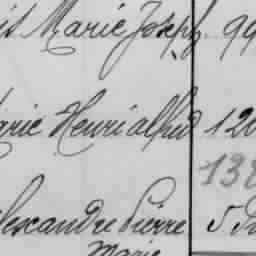 is Marie Joseph 99
arie Henri alfred 120
138
lexandre Pierre 5
Marie